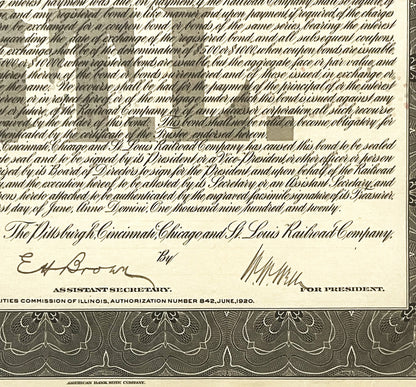 and, and registered bond in like manner and upon payment, if required, of the charges
be exchanged for a coupon bond or bonds of the same series, bearing the interest
date of exchange of the registered bond, and all subsequent coupons,
exchange may be in denominations of $500 or $1000, when coupon bonds are issuable
$500 or $1000, when registered bonds are issuable, but the aggregate face, or par value, and
bonds surrendered and of those issued in exchange or
same. No recourse shall be had for the payment of the principal of or the interest
thereon, or in respect hereof or of the mortgage under which this bond is issued, against any
of the Railroad Company, or of any successor corporation, all such recourse
waived by the holder of this bond. This Bond shall not become obligatory for
authenticated by the certificate of the Trustee endorsed hereon.
Cincinnati, Chicago and St. Louis Railroad Company has caused this bond to be sealed
seal, and to be signed by its President or a Vice-President or other officer or person
by its Board of Directors to sign for the President and upon behalf of the Railroad
and the execution hereof to be attested by its Secretary or an Assistant Secretary, and
hereto attached to be authenticated by the engraved facsimile signature of its Treasurer,
first day of June, Anno Domini, One thousand nine hundred and twenty.
The Pittsburgh, Cincinnati, Chicago and St. Louis Railroad Company,
By
E H Brown
ASSISTANT SECRETARY. FOR PRESIDENT.
ITIES COMMISSION OF ILLINOIS, AUTHORIZATION NUMBER 842, JUNE, 1920.
AMERICAN BANK NOTE COMPANY.